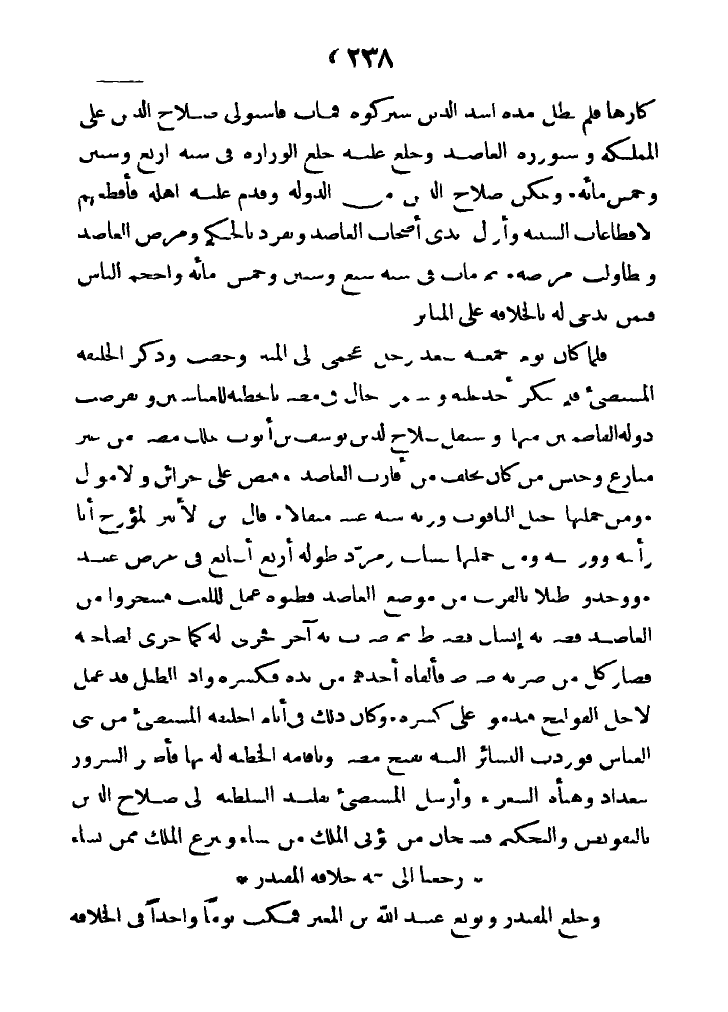 ﴿ ٢٣٨ ﴾
كارها فلم تطل مدة اسد الدين شيركوه فمات فاستولى صلاح الدين على
المملكة واستوزره العاضد وخلع عليه خلع الوزارة فى سنة اربع وستين
وخمسمائة. وتمكن صلاح الدين من الدولة وقدم عليه اهله فأقطعهم
الاقطاعات السنية وأزال يدى أصحاب العاضد وتفرد بالحكم ومرض العاضد
وتطاولت مرضه. ثم مات فى سنة سبع وستين وخمس مائة واحجم الناس
فيمن يدعى له بالخلافة على المنابر
فلما كان يوم جمعة صعد رجل عجمى الى المنبر وخطب وذكر الخليفة
المستضئ فلم ينكر أحد عليه واستمر الحال فى مصر بالخطبة للعباسيين وانقرضت
دولة الفاطميين منها واستقل صلاح الدين يوسف بن أيوب بملك مصر من غير
منازع وحبس من كان تخلف من أقارب العاضد وقبض على الخزائن والاموال
ومن جملتها جبل الياقوت وزنه سبعة عشر مثقالا. قال ابن الأثير المؤرخ أنا
رأيته ووزنته ومن جملتها نصاب زمرّد طوله أربع أصابع فى عرض عقد
ووجدوا طبلا بالقرب من موضع العاضد فظنوه عمل للعب فسخروا من
العاضد فضرب به إنسان فضرط ثم ضرب به آخر فجرى له كما جرى لصاحبه
فصار كل من ضربه ضرط فألقاه أحدهم من يده فكسره واذا الطبل قد عمل
لاجل القولنج فندموا على كسره. وكان ذلك فى أيام الخليفة المستضئ من بنى
العباس فوردت البشائر اليه بفتح مصر وباقامة الخطبة له بها فأظهر السرور
ببغداد وهنأه الشعراء وأرسل المستضئ تقليد السلطنة الى صلاح الدين
بالتفويض والتحكيم فسبحان من يؤتى الملك من يشاء وينزع الملك ممن يشاء
* رجعنا الى تتمة خلافة المقتدر *
وخلع المقتدر وبويع عبد الله بن المعتز فمكث يوماً واحداً فى الخلافة